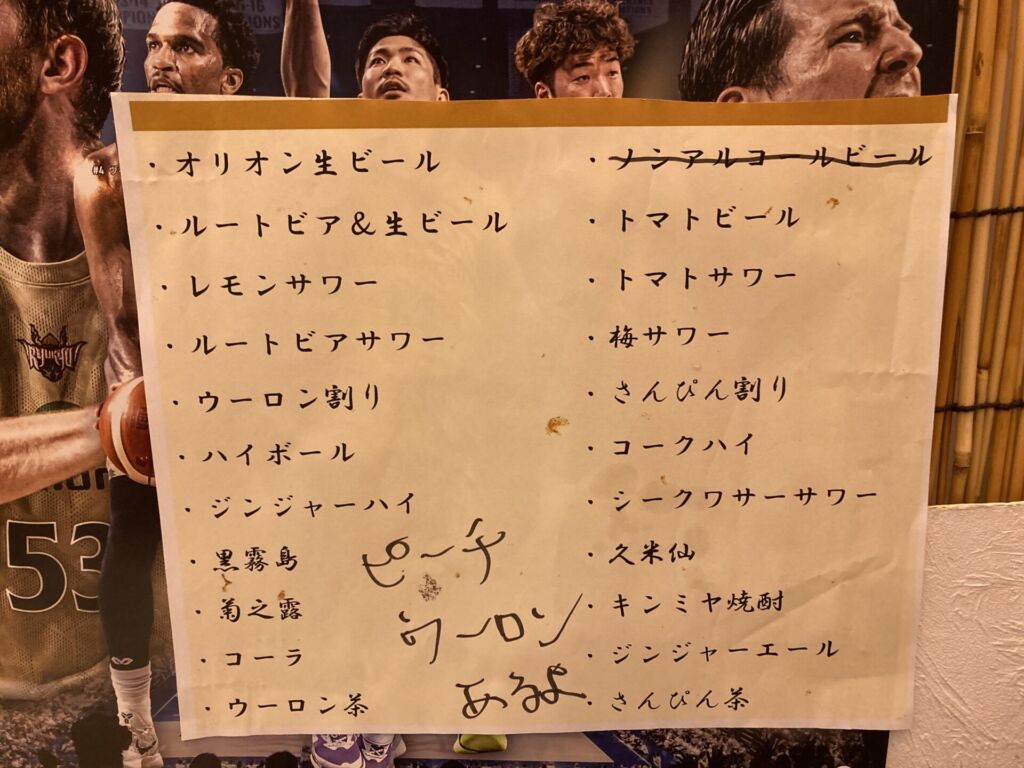 ・オリオン生ビール
・ルートビア&生ビール
・レモンサワー
・ルートビアサワー
・ウーロン割り
・ハイボール
・ジンジャーハイ
・黒霧島
・菊之露
・コーラ
・ウーロン茶
ピーチ
ウーロン
あるよ
・ノンアルコールビール
・トマトビール
・トマトサワー
・梅サワー
・さんぴん割り
・コークハイ
・シークワサーサワー
・久米仙
・キンミヤ焼酎
・ジンジャーエール
・さんぴん茶
RYUKYU
53